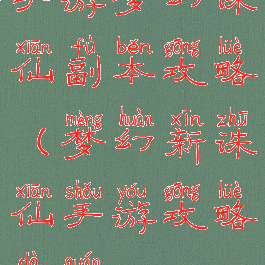 手游梦幻诛
xiān fù běn gōng lüè
仙副本攻略
mèng huàn xīn zhū
（梦幻新诛
xiān shǒu yóu gōng lüè
仙手游攻略
dà quán